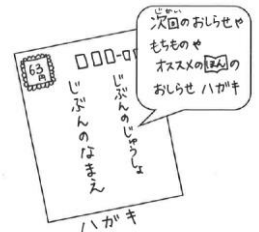 次回のおしらせや
じかい
もちものや
オススメのほんの
おしらせ ハガキ
63
円
じぶんのじゅうしょ
じぶんのなまえ
ハガキ